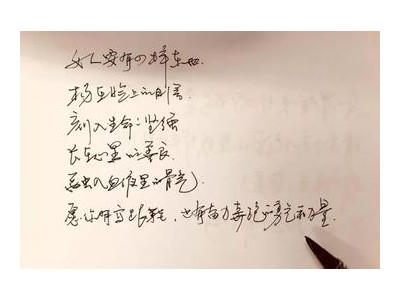 女人要有四样东西.
扬在脸上的自信
刻入生命的坚强
长在心里的善良
融入血液里的骨气
愿你, 也有奋力奔跑的勇气和力量.